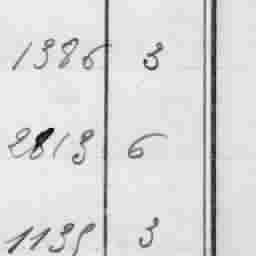 1386 3
2813 6
1139 3